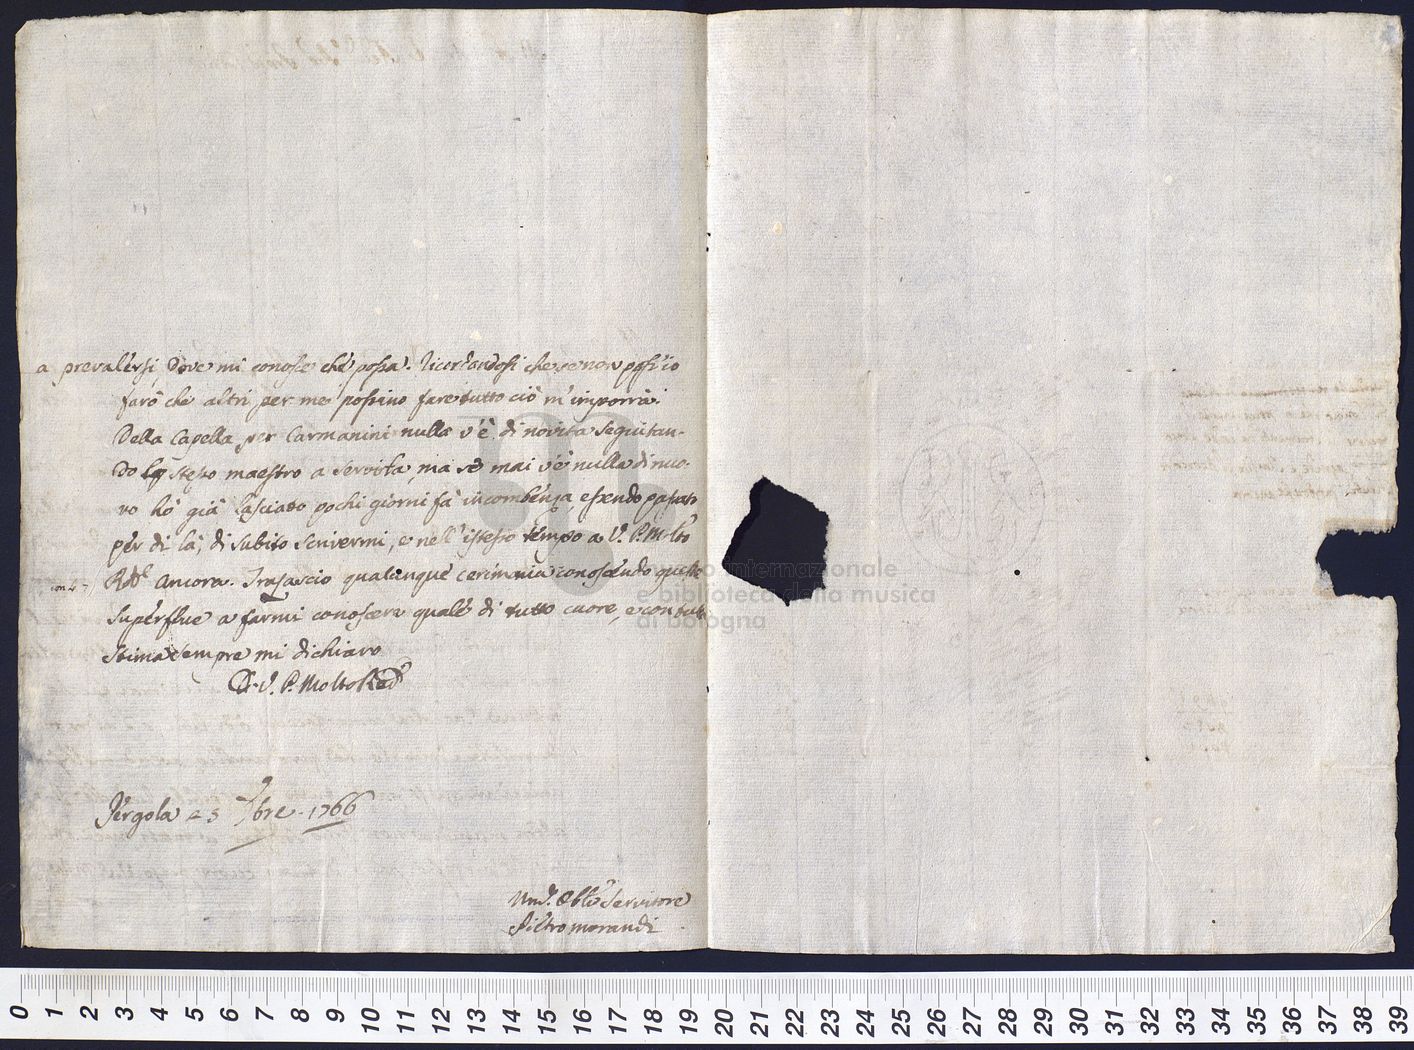 a prevalersi, dove mi conosce che possa. Ricordandosi che se non poss'io
farò che altri per me possino fare tutto ciò m'imporrà.
Della Capella per Carmanini nulla v'è di novità seguitan-
do lo stesso maestro a servirla, ma se mai v'è nulla di nuo-
vo hò già lasciato pochi giorni fà incombenza, essendo passato
per di là, di subito scrivermi, e nell'istesso tempo a V. P. Molto
Rdª ancora. Tralascio qualunque cerimonia conoscendo queste
superflue a farmi conoscere quale di tutto cuore, e con tutta
stima sempre mi dichiaro
Di V. P. Molto Redª
Pergola 23 7bre. 1766
Um. Obbo Servitore
Pietro Morandi
museo internazionale
e biblioteca della musica
di bologna
0 1 2 3 4 5 6 7 8 9 10 11 12 13 14 15 16 17 18 19 20 21 22 23 24 25 26 27 28 29 30 31 32 33 34 35 36 37 38 39